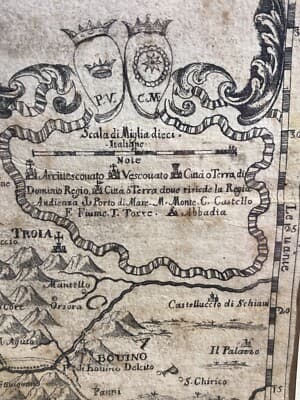 P.V. C.M.
Scala di Miglia dieci
Italiane
Note
Arcivescovato Vescovato Città ò Terra di
Dominio Regio, Città ò Terra doue risiede la Regia
Audienza Porto di Mare M. Monte C. Castello
F. Fiume T. Torre. Abbadia
TROIA
Mantello
Orsara
Castelluccio di Schiaui
BOUINO
P. di Bouino Delcito
Il Palazzo
S. Chirico
Panni
Leuante
15
20